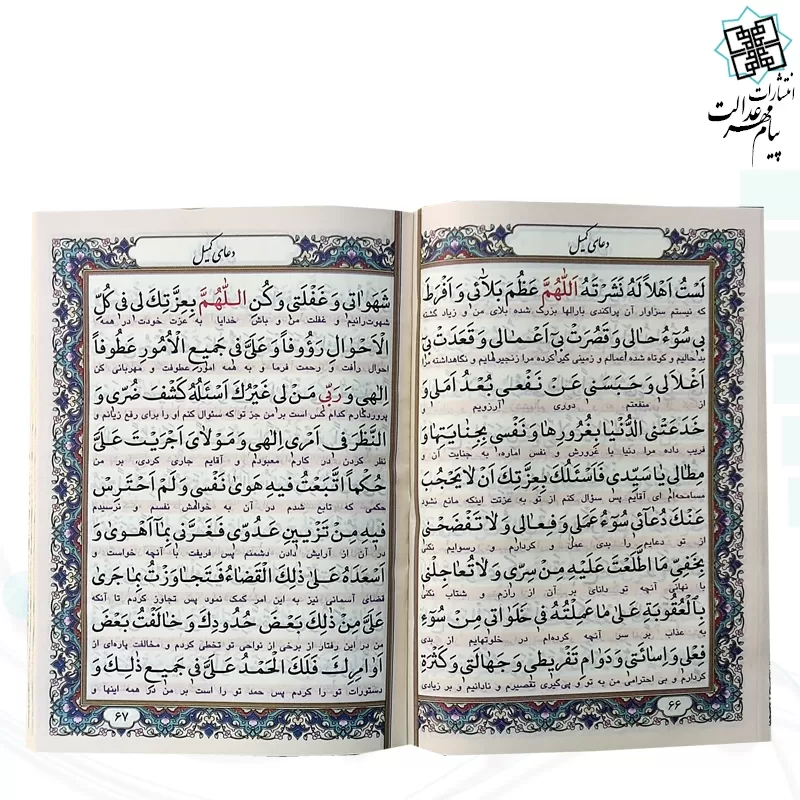 انتشارات
پیام مهر عدالت
دعای کمیل
لَسْتُ اَهْلاً لَهُ نَشَرْتَهُ اَللّٰهُمَّ عَظُمَ بَلاٰئی وَ اَفْرَطَ
که نیستم سزاوار آن پراکندی بارالها بزرگ شده بلای من و زیاد گشته
بی سُوٓءُ حالی وَ قَصُرَتْ بی اَعْمالی وَ قَعَدَتْ بی
بدحالیم و کوتاه شده اعمالم و زمینی گیر کرده مرا زنجیرهایم و نگاهداشته مرا
اَغْلالی وَ حَبَسَنی عَنْ نَفْعی بُعْدُ اَمَلی وَ
از منفعتم دوری آرزویم و
خَدَعَتْنِی الدُّنْیا بِغُرُورِها وَ نَفْسی بِجِنایَتِها وَ
فریب داده مرا دنیا با غرورش و نفس اماره، به جنایت آن و
مِطالی یا سَیِّدی فَاَسْئَلُكَ بِعِزَّتِكَ اَنْ لا یَحْجُبَ
مسامحه‌ام ای آقایم پس سؤال کنم از تو به عزتت اینکه مانع نشود
عَنْكَ دُعآئی سُوٓءُ عَمَلی وَ فِعالی وَ لا تَفْضَحْنی
از تو دعایم را بدی عملی و کردارم و رسوایم نکی
بِخَفِیِّ مَا اطَّلَعْتَ عَلَیْهِ مِنْ سِرّی وَ لا تُعاجِلْنی
با نهانی آنچه تو دانای بر آن از رازم و شتاب نکی
بِالْعُقُوبَةِ عَلیٰ ما عَمِلْتُهُ فی خَلَواتی مِنْ سُوٓءِ
به عذاب بر سر آنچه کرده‌ام در خلوتهایم از بدی
فِعْلی وَ اِسائَتی وَ دَوامِ تَفْریطی وَ جَهالَتی وَ کَثْرَةِ
کردارم و بی احترامی من به تو و پی‌گیری تقصیرم و نادانیم و بر زیادی
۶۶
دعای کمیل
شَهَواتی وَ غَفْلَتی وَ کُنِ اللّٰهُمَّ بِعِزَّتِكَ لی فی کُلِّ
شهوت‌رانیم و غفلت من و باش خدایا به عزت خودت در همه
الْاَحْوالِ رَؤُوفاً وَ عَلَیَّ فی جَمیعِ الْاُمُورِ عَطُوفاً
احوال رأفت و رحمت فرما و به همه امور عطوفت و مهربانی کن
اِلٰهی وَ رَبّی مَنْ لی غَیْرُكَ اَسْئَلُهُ کَشْفَ ضُرّی وَ
پروردگارم کدام کس است بر من جز تو که سئوال کنم او را برای رفع زیانم و
النَّظَرَ فی اَمْری اِلٰهی وَ مَوْلایَ اَجْرَیْتَ عَلَیَّ
نظر کردن در کارم معبودم و آقایم جاری کردی، بر من
حُکْماً اتَّبَعْتُ فیهِ هَویٰ نَفْسی وَ لَمْ اَحْتَرِسْ
حکمی که تابع شدم در آن به خواهش نفسم و نترسیدم
فیهِ مِنْ تَزْیینِ عَدُوّی فَغَرَّنی بِمٰآ اَهْویٰ وَ
در آن از آرایش دادن دشمنم پس فریفت با آنچه خواست و
اَسْعَدَهُ عَلیٰ ذٰلِكَ الْقَضآءُ فَتَجاوَزْتُ بِما جَریٰ
قضای آسمانی نیز به این امر کمک نمود پس تجاوز کردم تا آنکه
عَلَیَّ مِنْ ذٰلِكَ بَعْضَ حُدُودِكَ وَ خالَفْتُ بَعْضَ
من در این رفتار از برخی از نواحی تو تخطی کردم و مخالفت پاره‌ای از
اَوامِرِكَ فَلَكَ الْحَمْدُ عَلَیَّ فی جَمیعِ ذٰلِكَ وَ
دستورات تو را کردم پس حمد تو را است بر من در همه اینها و
۶۷